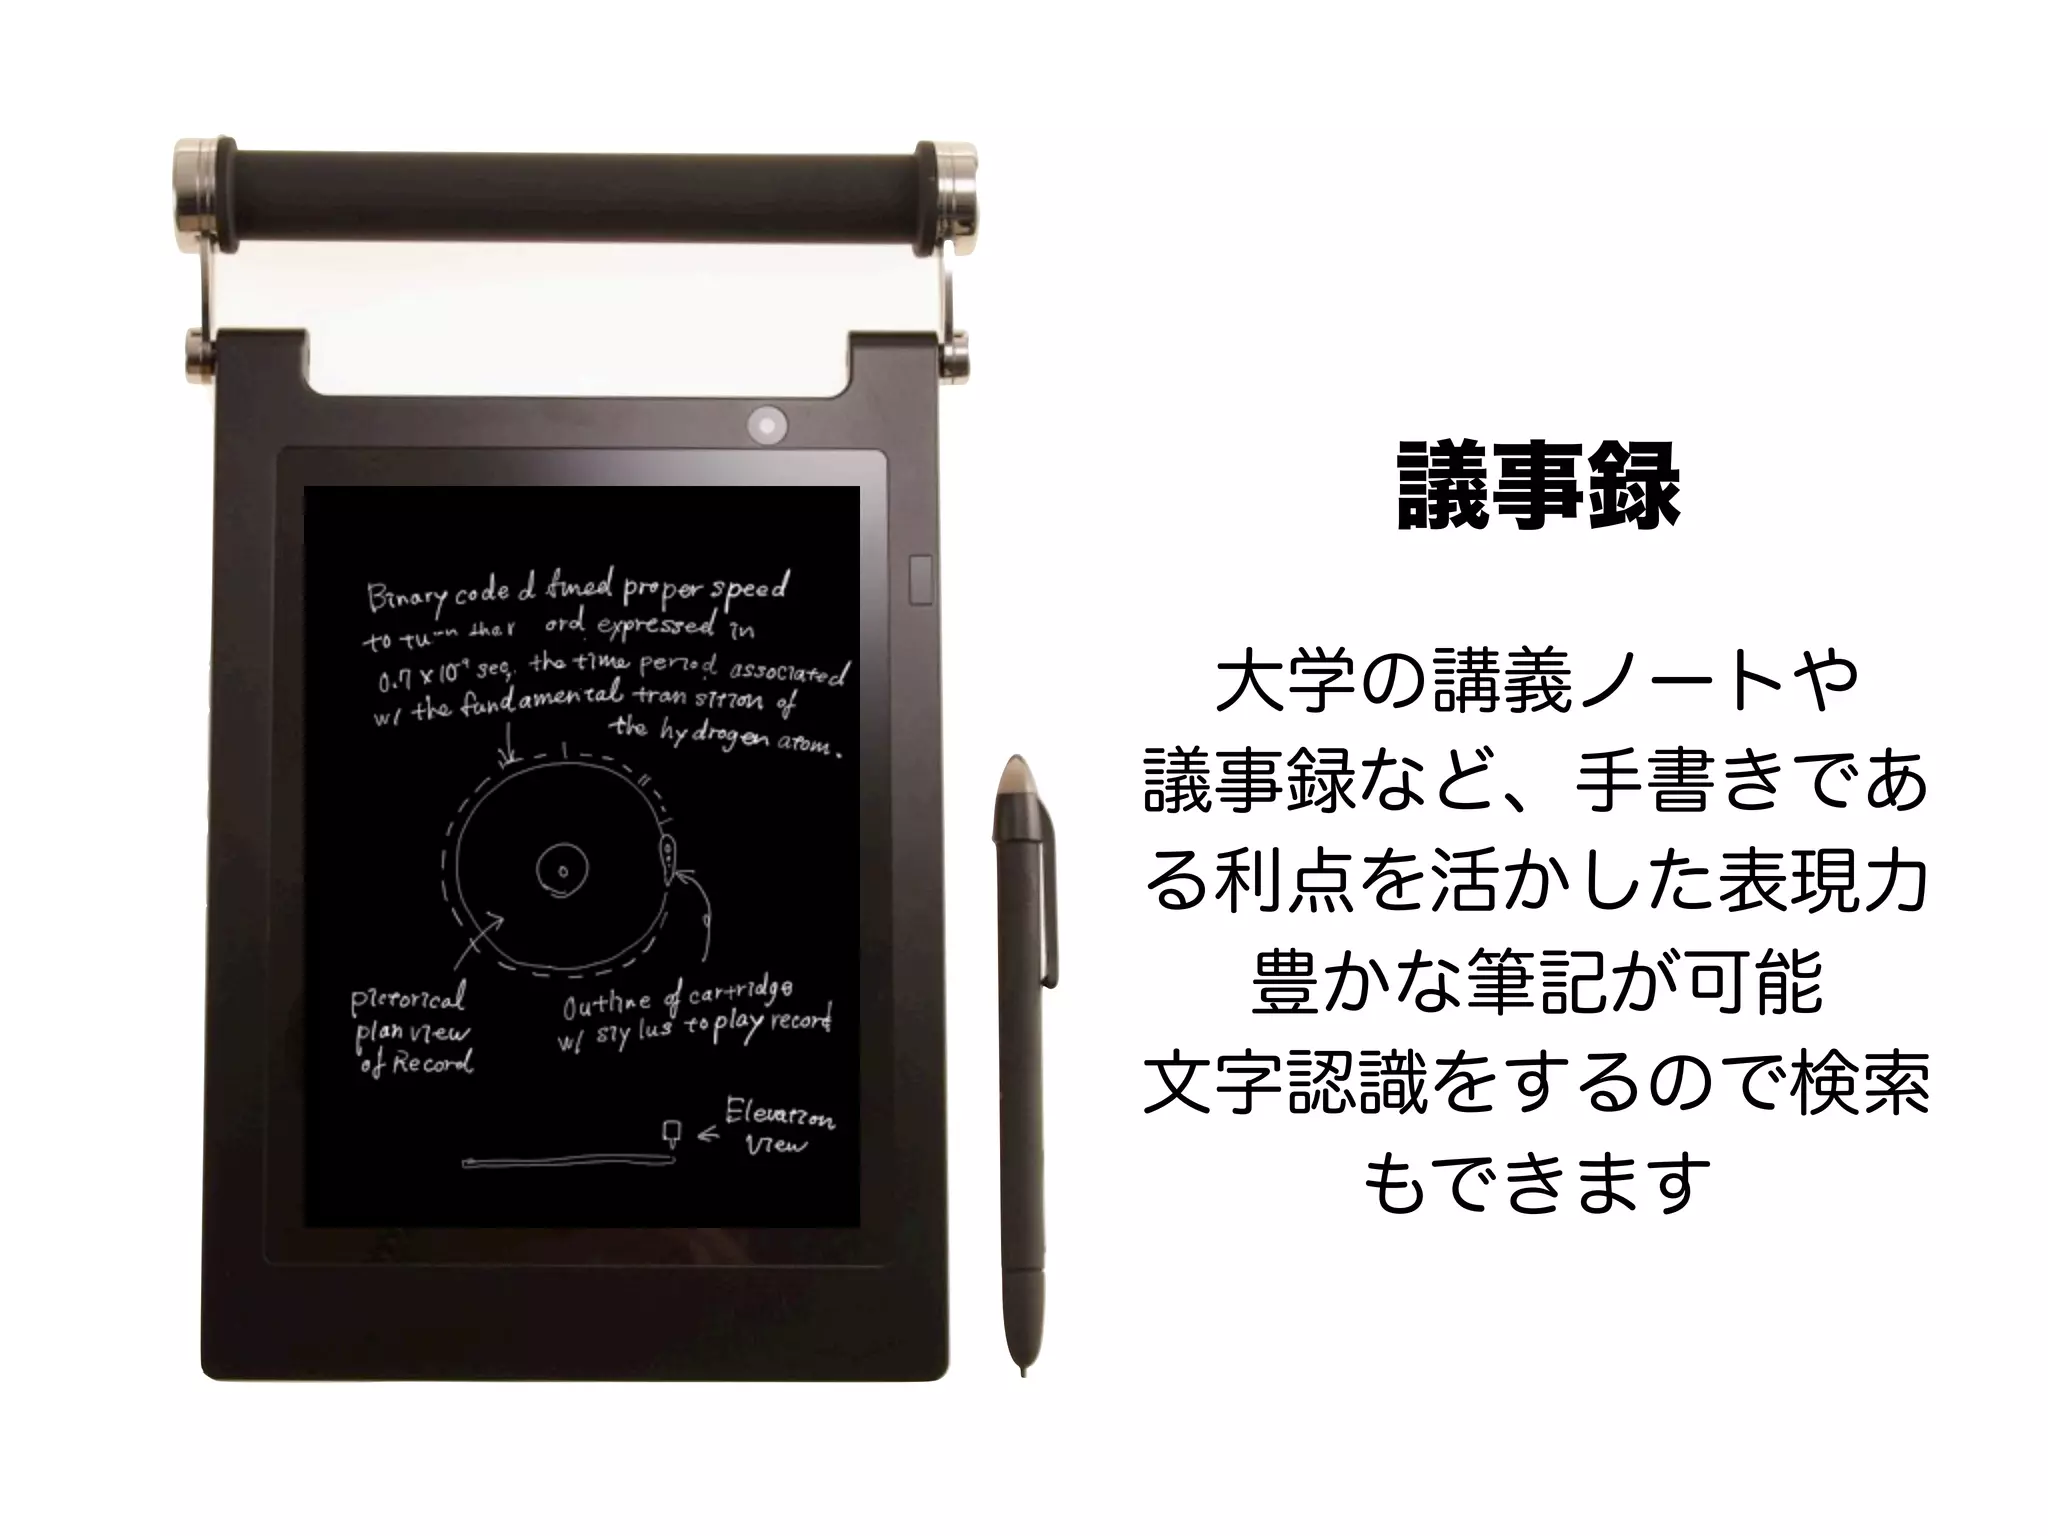 議事録
大学の講義ノートや
議事録など、手書きであ
る利点を活かした表現力
豊かな筆記が可能
文字認識をするので検索
もできます
Binary code d proper speed
to turn ord expressed in
0.7 x 10⁻⁹ seq. the time period associated
w/ the fundamental transition of
the hydrogen atom.
pictorical
plan view
of Record
Outline of cartridge
w/ stylus to play record
Elevation
View